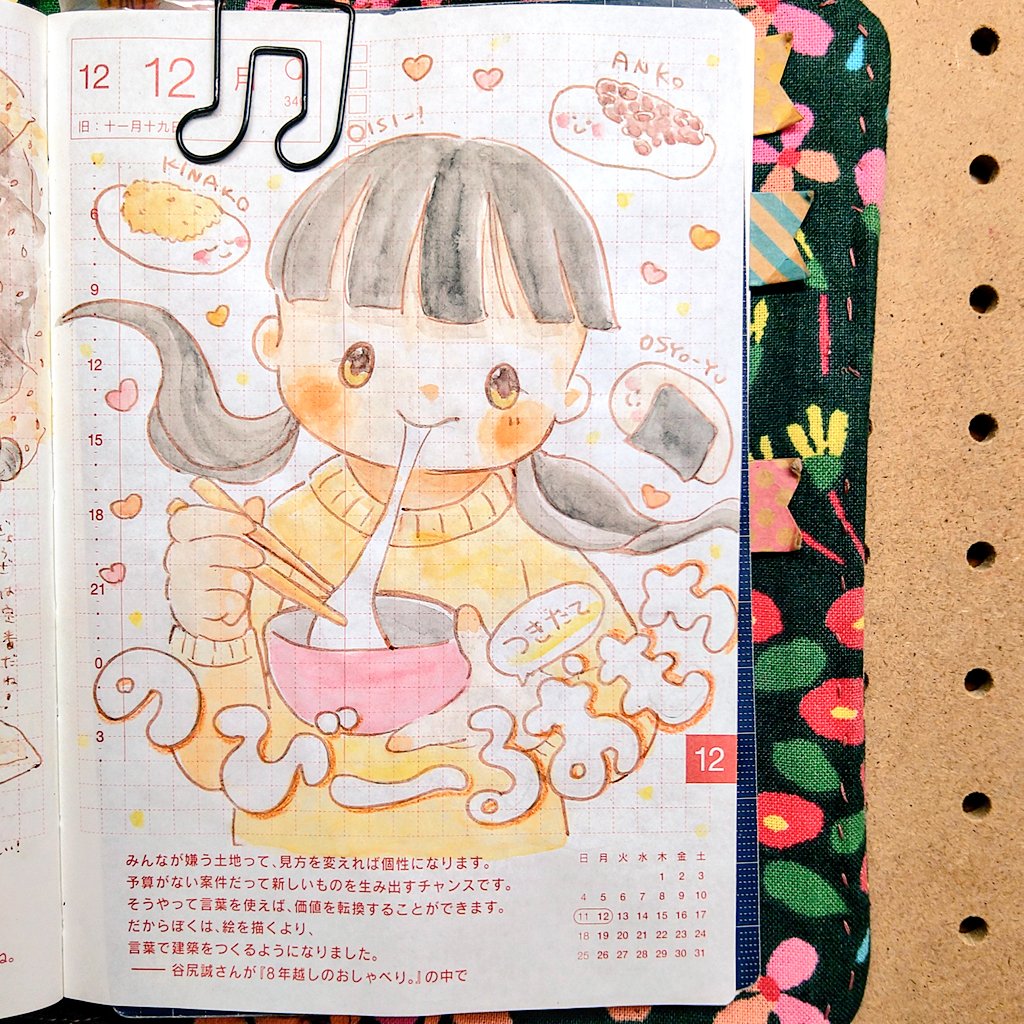 12 12月
旧：十一月十九日
OISI-!
ANKO
KINAKO
OSYO-YU
6
9
12
15
18
21
0
3
つきたて
のび〜るおもち
12
みんなが嫌う土地って、見方を変えれば個性になります。
予算がない案件だって新しいものを生み出すチャンスです。
そうやって言葉を使えば、価値を転換することができます。
だからぼくは、絵を描くより、
言葉で建築をつくるようになりました。
—— 谷尻誠さんが『8年越しのおしゃべり。』の中で
日 月 火 水 木 金 土
1 2 3
4 5 6 7 8 9 10
11 12 13 14 15 16 17
18 19 20 21 22 23 24
25 26 27 28 29 30 31